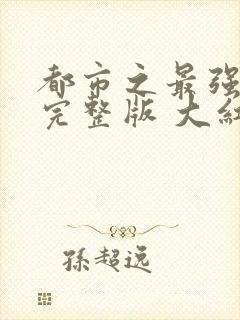 都市之最强
完整版 大红
孫超远